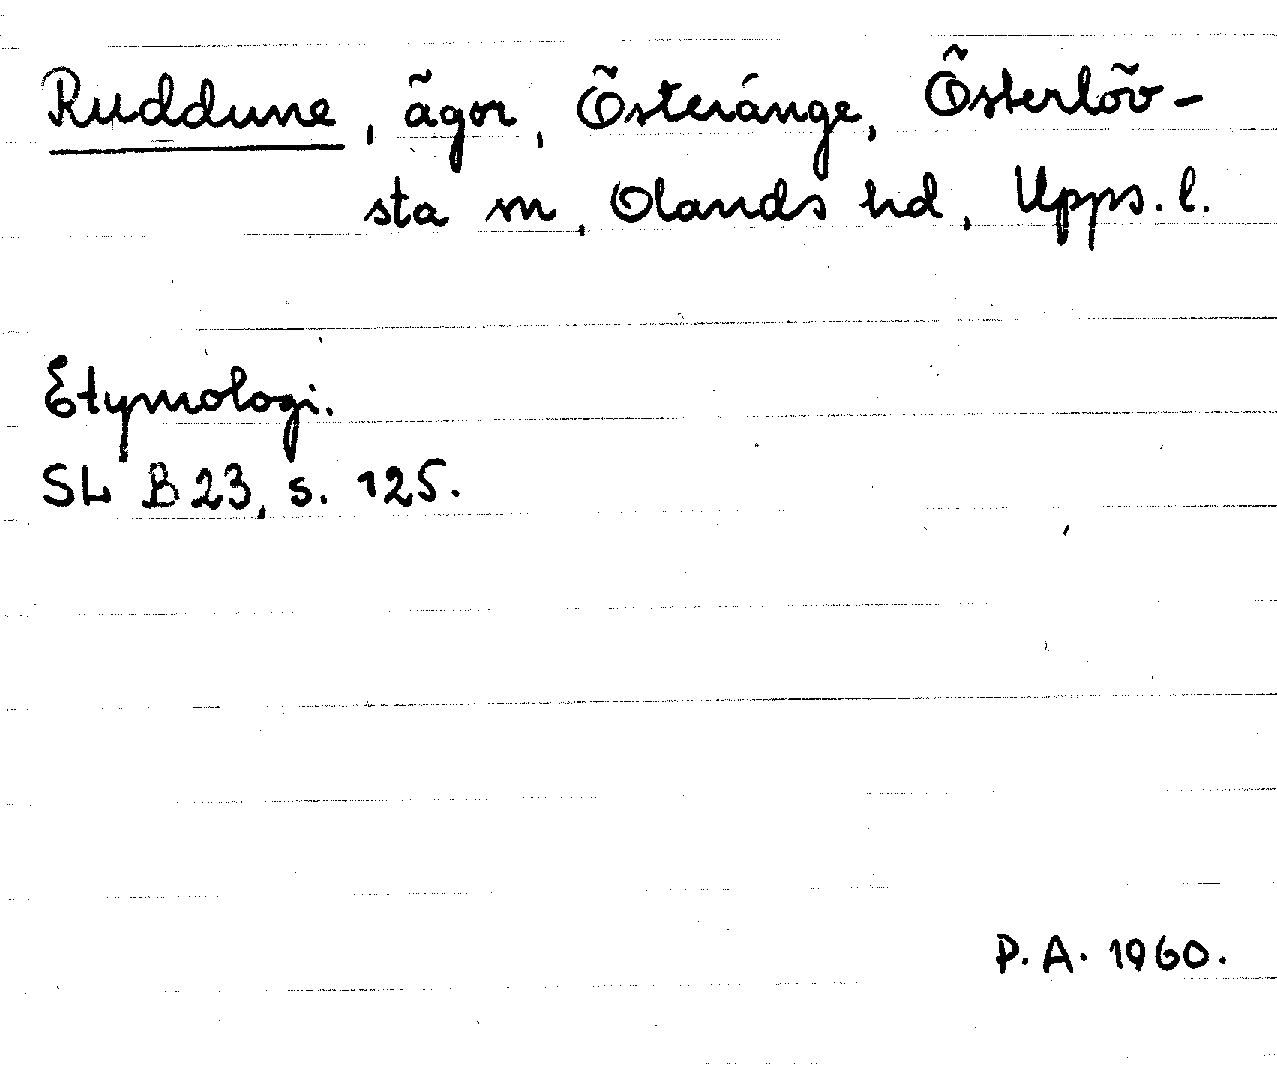 Ruddune, ägor, Österänge, Österlöv-
sta sn, Olands hd, Upps. l.
Etymologi.
SL B 23, s. 125.
P. A. 1960.